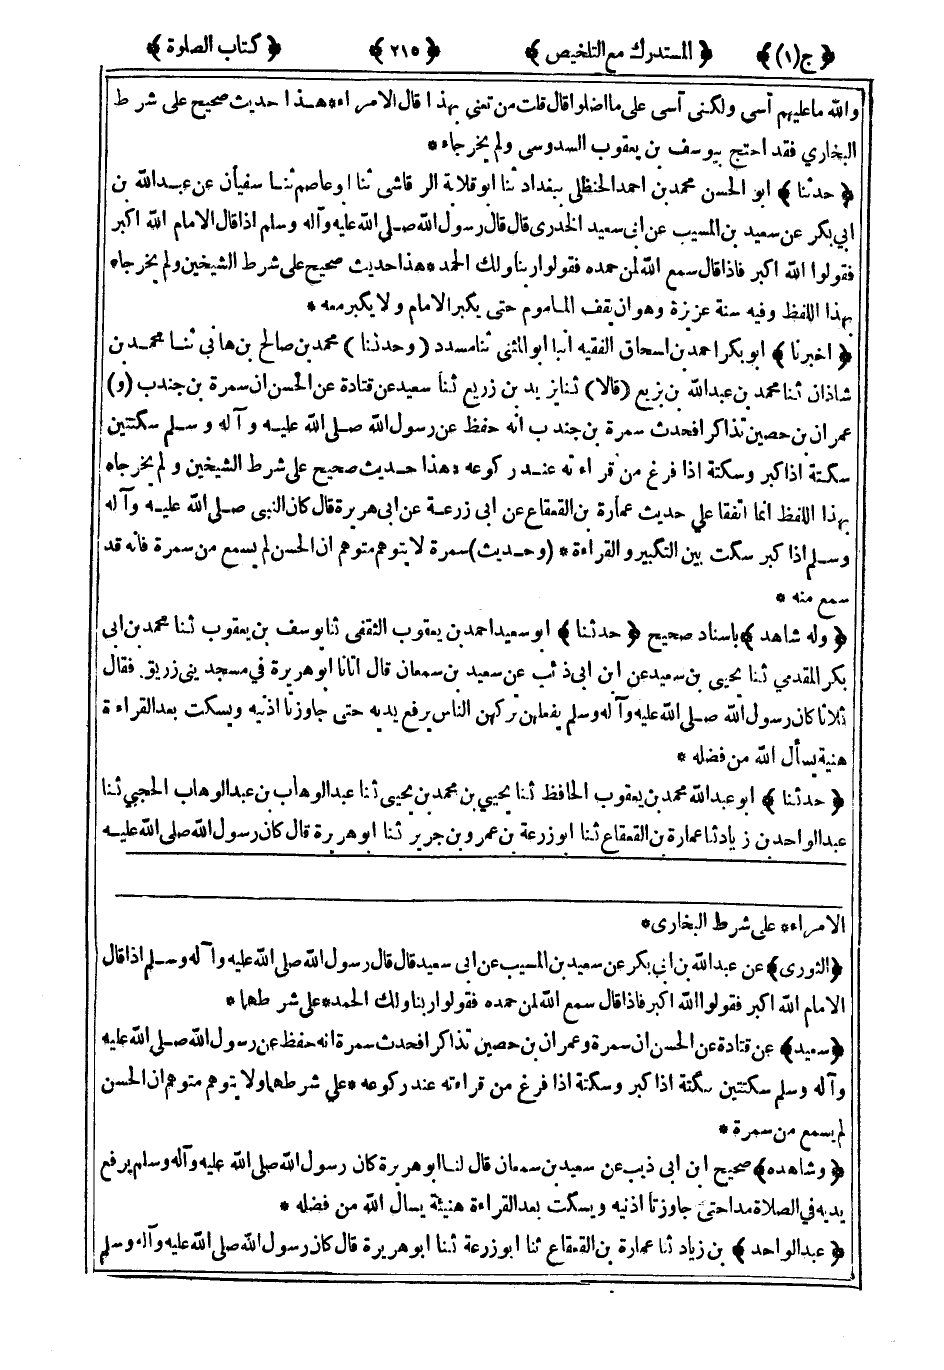 ﴿ ج(١) ﴾ ﴿ المستدرك مع التلخيص ﴾ ﴿ ٢١٥ ﴾ ﴿ كتاب الصلوة ﴾
والله ما عليهم آسى ولكنى آسى على ما اضلوا قال قلت من تعنى بهذا قال الامراء * هذا حديث صحيح على شرط
البخاري فقد احتج بيوسف بن يعقوب السدوسى ولم يخرجاه *
﴿ حدثنا ﴾ ابو الحسن محمد بن احمد الحنظلي ببغداد ثنا ابو قلابة الرقاشى ثنا ابو عاصم ثنا سفيان عن عبد الله بن
ابي بكر عن سعيد بن المسيب عن ابى سعيد الخدرى قال قال رسول الله صلى الله عليه وآله وسلم اذا قال الامام الله اكبر
فقولوا الله اكبر فاذا قال سمع الله لمن حمده فقولوا ربنا ولك الحمد * هذا حديث صحيح على شرط الشيخين ولم يخرجاه
بهذا اللفظ وفيه سنة عزيزة وهو ان يقف المأموم حتى يكبر الامام ولا يكبر معه *
﴿ اخبرنا ﴾ ابو بكر احمد بن اسحاق الفقيه انبا ابو المثنى ثنا مسدد ( وحدثنا ) محمد بن صالح بن هانى ثنا محمد بن
شاذان ثنا محمد بن عبد الله بن بزيع (قالا) ثنا يزيد بن زريع ثنا سعيد عن قتادة عن الحسن ان سمرة بن جندب (و)
عمران بن حصين تذاكرا فحدث سمرة بن جندب أنه حفظ عن رسول الله صلى الله عليه وآله وسلم سكتتين
سكتة اذا كبر وسكتة اذا فرغ من قراءته عند ركوعه * هذا حديث صحيح على شرط الشيخين ولم يخرجاه
بهذا اللفظ انما اتفقا علي حديث عمارة بن القعقاع عن ابى زرعة عن ابى هريرة قال كان النبي صلى الله عليه وآله
وسلم اذا كبر سكت بين التكبير والقراءة * (وحديث) سمرة لا يتوهم متوهم ان الحسن لم يسمع من سمرة فانه قد
سمع منه *
﴿ وله شاهد ﴾ باسناد صحيح ﴿ حدثنا ﴾ ابو سعيد احمد بن يعقوب الثقفى ثنا يوسف بن يعقوب ثنا محمد بن ابى
بكر المقدمي ثنا يحيى بن سعيد عن ابن ابى ذئب عن سعيد بن سمعان قال اتانا ابو هريرة في مسجد بنى زريق فقال
ثلاثا كان رسول الله صلى الله عليه وآله وسلم يفعلهن تركهن الناس يرفع يديه حتى جاوزتا اذنيه ويسكت بعد القراءة
هنية يسأل الله من فضله *
﴿ حدثنا ﴾ ابو عبد الله محمد بن يعقوب الحافظ ثنا يحيي بن محمد بن يحيى ثنا عبد الوهاب بن عبد الوهاب الحجبي ثنا
عبد الواحد بن زياد ثنا عمارة بن القعقاع ثنا ابو زرعة بن عمرو بن جرير ثنا ابو هريرة قال كان رسول الله صلى الله عليه
الامراء * على شرط البخارى *
﴿الثورى﴾ عن عبد الله بن ابى بكر عن سعيد بن المسيب عن ابى سعيد قال قال رسول الله صلى الله عليه وآله وسلم اذا قال
الامام الله اكبر فقولوا الله اكبر فاذا قال سمع الله لمن حمده فقولوا ربنا ولك الحمد * على شرطهما *
﴿سعيد﴾ عن قتادة عن الحسن ان سمرة وعمران بن حصين تذاكرا فحدث سمرة انه حفظ عن رسول الله صلى الله عليه
وآله وسلم سكتتين سكتة اذا كبر وسكتة اذا فرغ من قراءته عند ركوعه * علي شرطهما ولا يتوهم متوهم ان الحسن
لم يسمع من سمرة *
﴿ وشاهده ﴾ صحيح ابن ابى ذيب عن سعيد بن سمعان قال لنا ابو هريرة كان رسول الله صلى الله عليه وآله وسلم يرفع
يديه في الصلاة مدا حتى جاوزتا اذنيه ويسكت بعد القراءة هنيئة يسأل الله من فضله *
﴿ عبد الواحد ﴾ بن زياد ثنا عمارة بن القعقاع ثنا ابو زرعة ثنا ابو هريرة قال كان رسول الله صلى الله عليه وآله وسلم